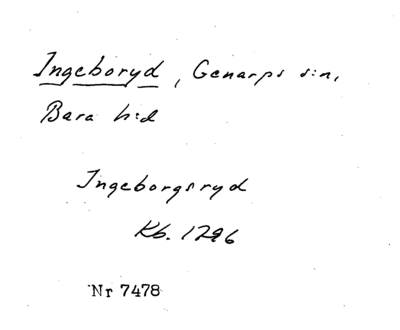 Ingeboryd, Genarps s:n,
Bara h:d
Ingeborgsryd
Kb. 1796
Nr 7478